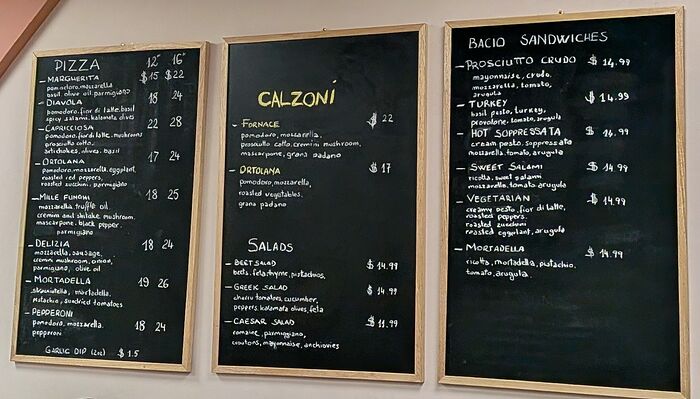 PIZZA 12" 16"
– MARGHERITA $15 $22
pomodoro, mozzarella
basil, olive oil, parmigiano
– DIAVOLA 18 24
pomodoro, fior di latte, basil
spicy salami, kalamata olives
– CAPRICCIOSA 22 28
pomodoro, fior di latte, mushrooms
prosciutto cotto,
artichokes, olives, basil
– ORTOLANA 17 24
pomodoro, mozzarella, eggplant,
roasted red peppers,
roasted zucchini, parmigiano
– MILLE FUNGHI 18 25
mozzarella, truffle oil,
cremini and shitake mushroom,
mascarpone, black pepper,
parmigiano
– DELIZIA 18 24
mozzarella, sausage,
cremini mushroom, onion,
parmigiano, olive oil
– MORTADELLA 19 26
stracciatella, mortadella,
pistachio, sundried tomatoes
– PEPPERONI 18 24
pomodoro, mozzarella,
pepperoni
GARLIC DIP (2oz) $1.5
CALZONI
– FORNACE $22
pomodoro, mozzarella,
prosciutto cotto, cremini mushroom,
mascarpone, grana padano
– ORTOLANA $17
pomodoro, mozzarella,
roasted vegetables,
grana padano
SALADS
– BEET SALAD $14.99
beets, feta, thyme, pistachios,
– GREEK SALAD $14.99
cherry tomatoes, cucumber,
peppers, kalamata olives, feta
– CAESAR SALAD $11.99
romaine, parmigiano,
croutons, mayonnaise, anchovies
BACIO SANDWICHES
– PROSCIUTTO CRUDO $14.99
mayonnaise, crudo,
mozzarella, tomato,
arugula
– TURKEY $14.99
basil pesto, turkey,
provolone, tomato, arugula
– HOT SOPPRESSATA $14.99
cream pesto, soppressata
mozzarella, tomato, arugula
– SWEET SALAMI $14.99
ricotta, sweet salami
mozzarella, tomato, arugula
– VEGETARIAN $14.99
creamy pesto, fior di latte,
roasted peppers,
roasted zucchini
roasted eggplant, arugula
– MORTADELLA $14.99
ricotta, mortadella, pistachio,
tomato, arugula